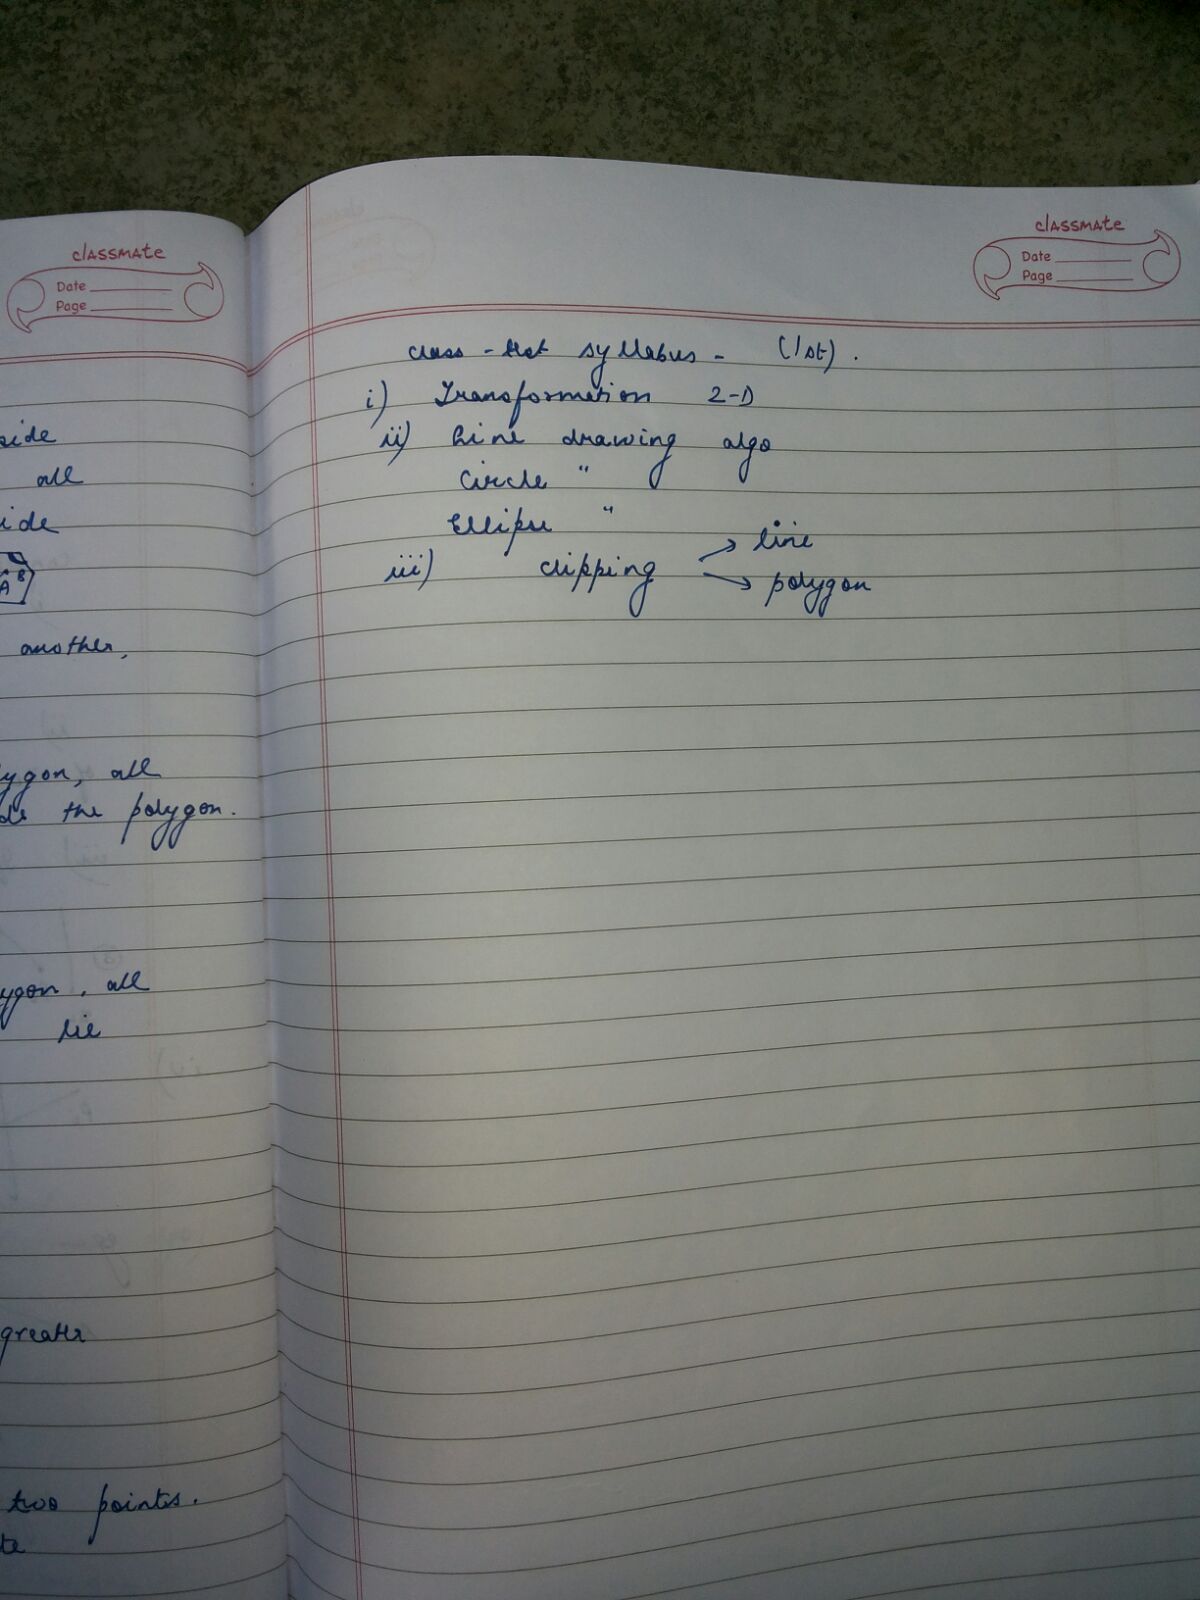 classmate
Date
Page
side
all
ide
A B
another,
ygon, all
de the polygon.
ygon, all
lie
greater
two points.
te
classmate
Date
Page
class-test syllabus - (1st).
i) Transformation 2-D
ii) Line drawing algo
Circle "
Ellipse "
iii) clipping → line
→ polygon